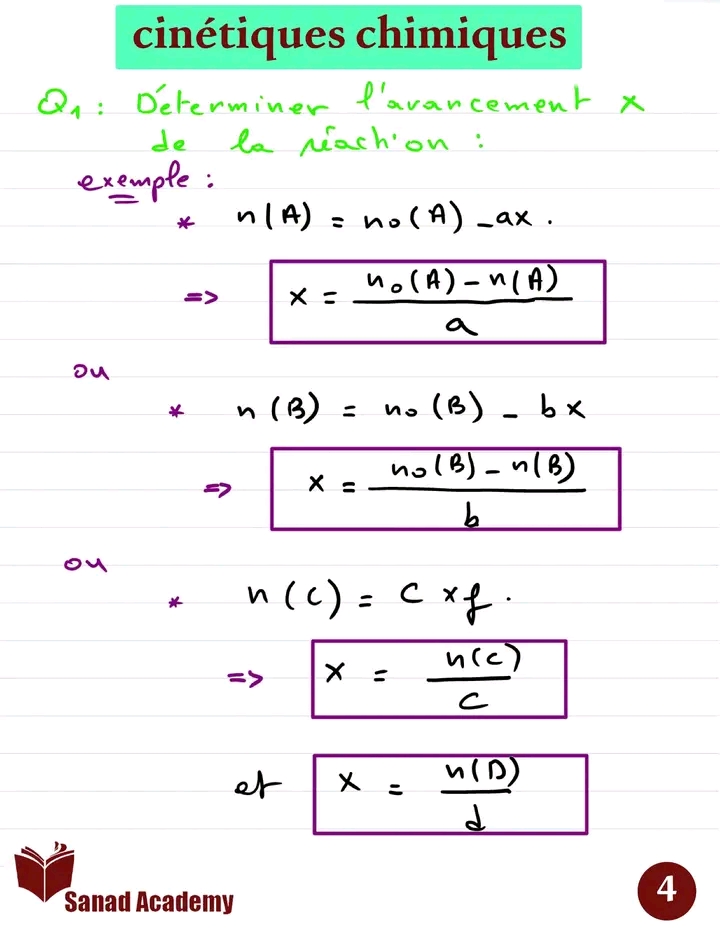 cinétiques chimiques
Q₁ : Déterminer l'avancement x
de la réaction :
exemple :
* n(A) = n₀(A) - ax .
=> x = (n₀(A) - n(A)) / a
ou
* n(B) = n₀(B) - bx
=> x = (n₀(B) - n(B)) / b
ou
* n(C) = C xf .
=> x = n(C) / C
et x = n(D) / d
Sanad Academy
4